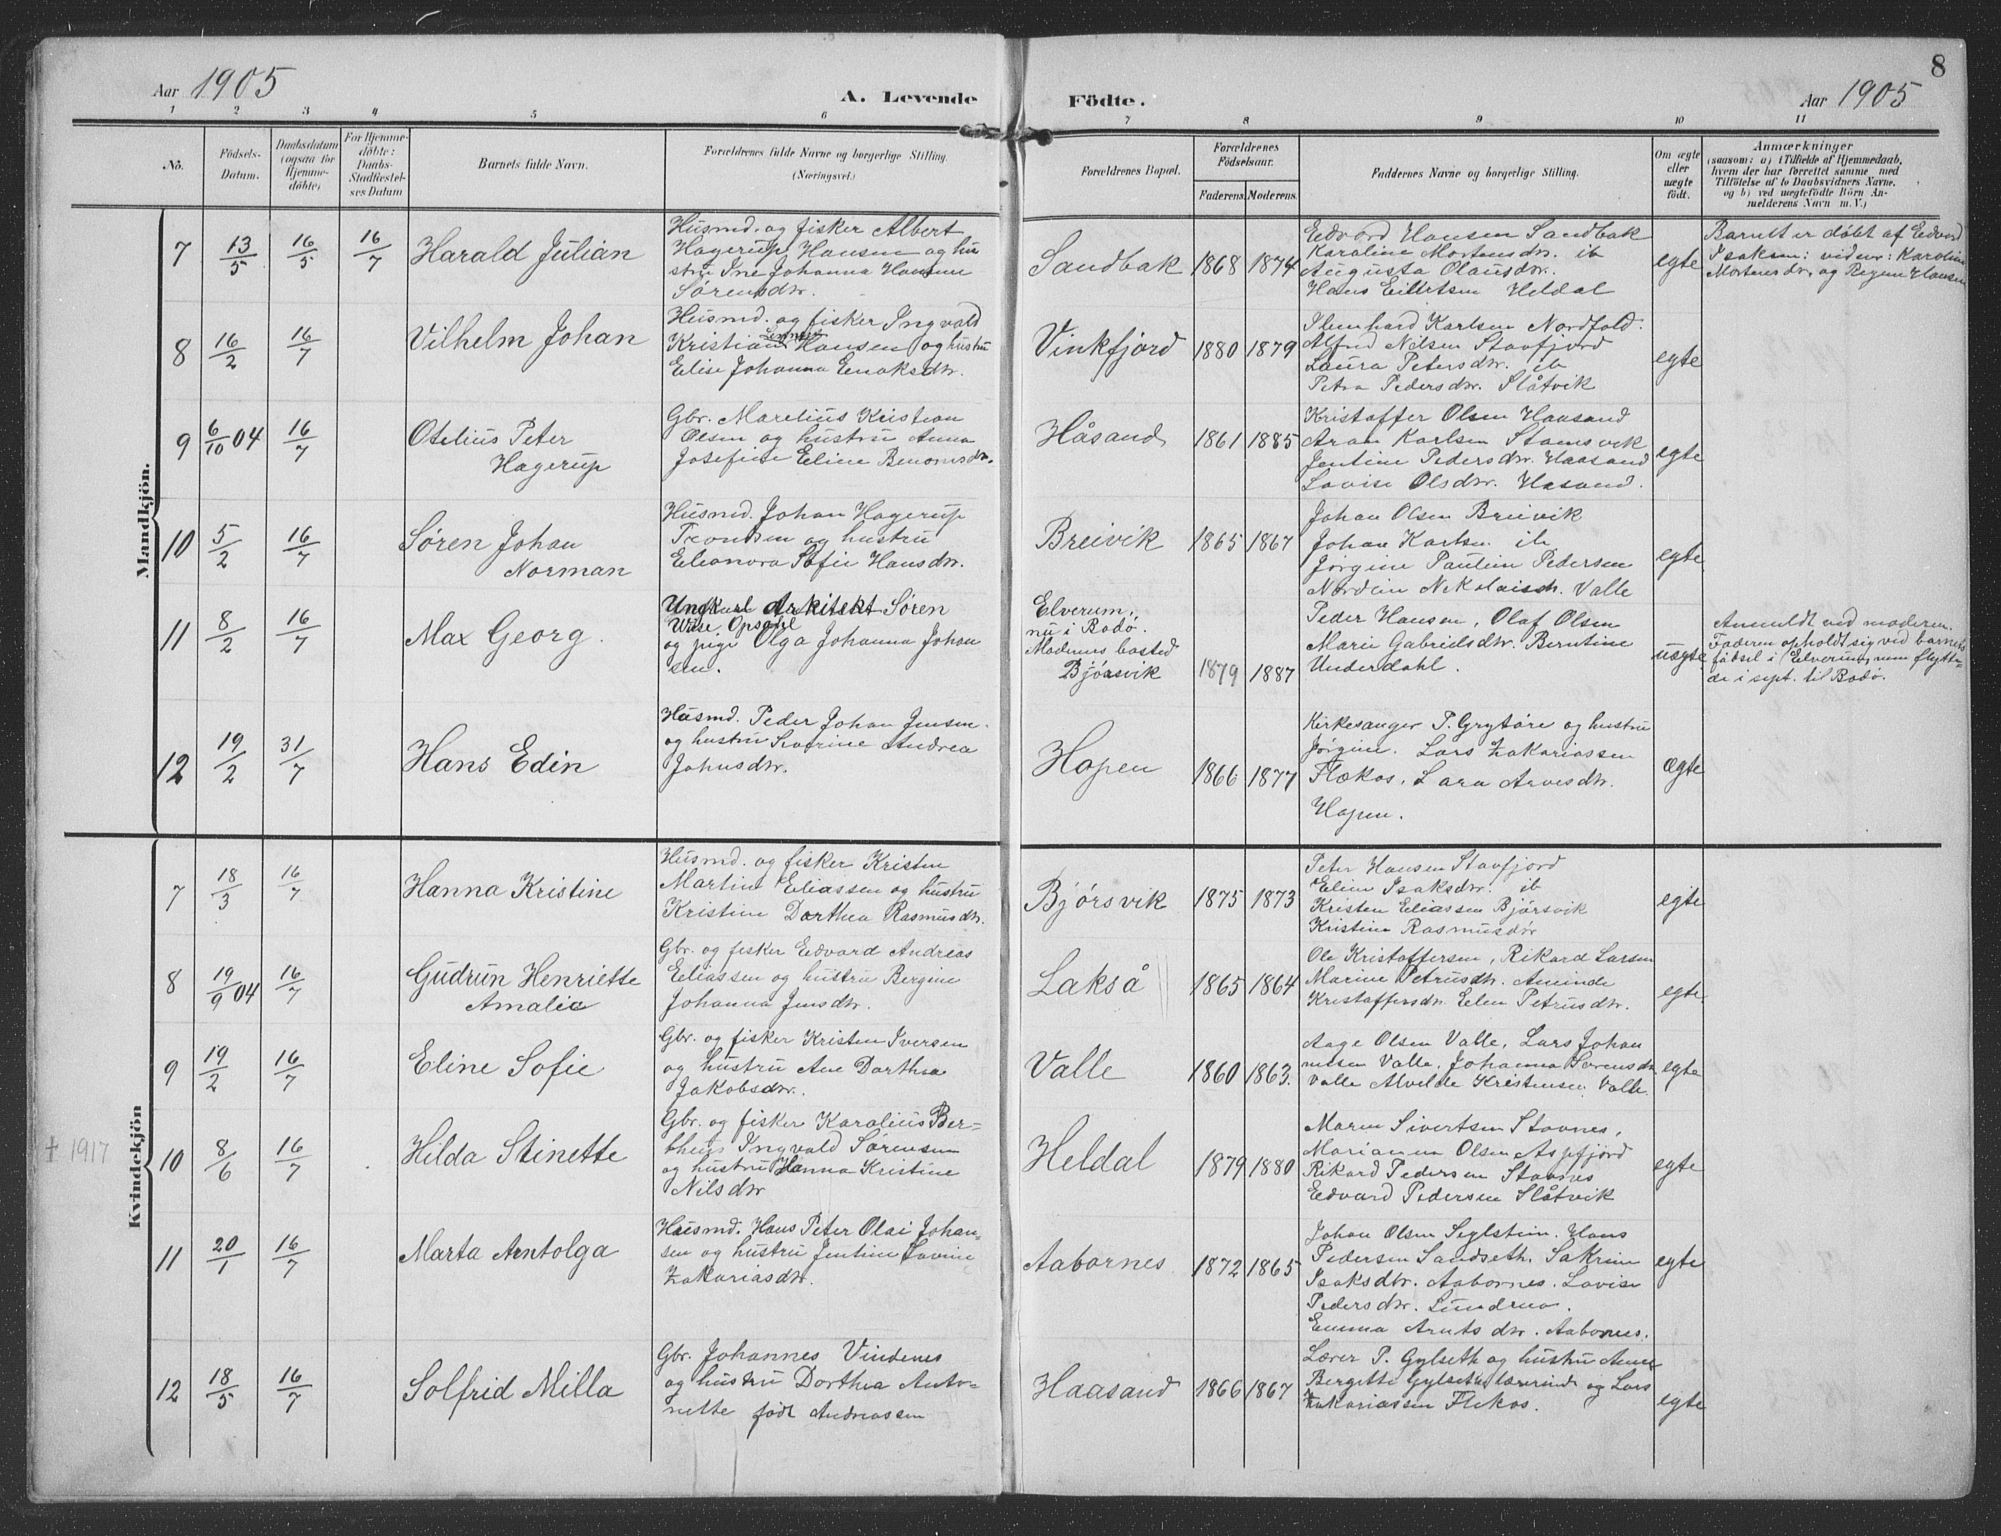 8
Aar 1905
A. Levende
Födte.
Aar 1905
1 2 3 4 5 6 7 8 9 10 11
No.
Födsels-
Datum.
Daabsdatum
(ogsaa for
Hjemme-
döbte)
For Hjemme-
döbte:
Daabs-
Stadfestel-
ses Datum
Barnets fulde Navn.
Forældrenes fulde Navne og borgerlige Stilling.
(Næringsvei.)
Forældrenes Bopæl.
Forældrenes
Födselsaar.
Faderens. Moderens.
Faddernes Navne og borgerlige Stilling.
Om ægte
eller
uægte
födt.
Anmærkninger
(saasom: a) i Tilfælde af Hjemmedaab,
hvem der har forrettet samme med
Tilföielse af to Daabsvidners Navne,
og b) ved uægtefödte Börn An-
melderens Navn m. V.)
Mandkjön.
7
13/5
16/5
16/7
Harald Julian
Husmd. og fisker Albert
Hagerup Hansen og hu
stru Ine Johanna Hansine
Sørensdtr.
Sandbak
1868
1874
Edvard Hansen Sandbak
Karoline Mortensdtr. ib
Augusta Olausdtr.
Hans Eilertsen Heldal
egte
Barnet er døbt af Edvard
Isaksen: vidner: Karoline
Mortensdtr. og Regine Hansen
8
16/2
16/7
Vilhelm Johan
Husmd. og fisker Ingvald
Kristian Hansen og hustru
Elise Johanna Enoksdtr.
Vinkfjord
1880
1879
Karlsen Nordfold.
Alfred Nilsen Stavfjord
Laura Petersdtr. ib
Petra Pedersdtr. Slåtvik
egte
9
6/10 04
16/7
Otelius Peter
Hagerup
Gbr. Marelius Kristian
Olsen og hustru Anna
Josefine Eline Benonisdtr.
Håsand
1861
1885
Kristoffer Olsen Haasand
Aron Karlsen Stamsvik
Jentine Pedersdtr. Haasand
Lovise Olsdtr. Hasand.
egte
10
5/2
16/7
Søren Johan
Norman
Husmd. Johan Hagerup
Trondsen og hustru
Eleonora Sofie Hansdtr.
Breivik
1865
1867
Johan Olsen Breivik
Johan Karlsen ib
Jørgine Pauline Pedersen
Nordine Nekolaisdtr. Valle
egte
11
8/2
16/7
Max Georg.
Ungkarl Arkitekt Søren
Wiese Opsahl
og pige Olga Johanna Johan
sen.
Elverum,
nu i Bodø.
Moderens bosted
Bjørsvik
1879
1887
Peder Hansen, Olaf Olsen
Marie Gabrielsdtr. Berntine
Underdahl.
uegte
Anmeldt ved moderen.
Faderen opholdt sig ved barnets
fødsel i Elverum, men flytte-
de i sept. til Bodø.
12
19/2
31/7
Hans Edin
Husmd. Peder Johan Jensen.
og hustru Severine Andrea
Johnsdtr.
Hopen
1866
1877
Kirkesanger P. Grytøre og hustru
Jørgine. Lars Zakariassen
Flækos, Lara Arvesdtr.
Hopen.
ægte
Kvindekjön
7
18/3
16/7
Hanna Kristine
Husmd. og fisker Kristen
Martin Eliassen og hustru
Kristine Dorthea Rasmusdtr.
Bjørsvik
1875
1873
Peter Hansen Stavfjord
Eline Isaksdtr. ib
Kristen Eliassen Bjørsvik
Kristine Rasmusdtr
egte
8
19/9 04
16/7
Gudrun Henriette
Amalie
Gbr. og fisker Edvard Andreas
Eliassen og hustru Bergine
Johanna Jensdtr.
Lakså
1865
1864
Ole Kristoffersen, Rikard Larsen
Marine Petrusdtr. Aminde
Kristoffersdtr. Elen Petrusdtr.
egte
9
19/2
16/7
Eline Sofie
Gbr. og fisker Kristen Iversen
og hustru Ane Dorthea
Jakobsdtr.
Valle
1860
1863.
Aage Olsen Valle, Lars Johan
nesen Valle, Johanna Sørensdtr.
Valle Alvilde Kristensen Valle
egte
† 1917
10
8/6
16/7
Hilda Stinette
Gbr. og fisker Karolius Ber=
theus Ingvald Sørensen
og hustru Hanna Kristine
Nilsdtr
Heldal
1879
1880
Maren Sivertsen Stavnes,
Marianna Olsen Aspfjord
Rikard Pedersen Stavnes
Edvard Pedersen Slåtvik
egte
11
20/1
16/7
Marta Arntolga
Husmd. Hans Peter Olai Johan-
sen og hustru Jentine Lovine
Zakariasdtr.
Aabornes
1872
1865
Johan Olsen Seglstein. Hans
Pedersen Sandseth. Sakrine
Isaksdtr. Aabornes. Lovise
Pedersdtr.
Emma Arntsdtr. Aabornes.
egte
12
18/5
16/7
Solfrid Milla
Gbr. Johannes Vindenes
og hustru Dorthea Anto-
nette født Andreassen
Haasand
1866
1867
Lærer P. Gylseth og hustru Anne
Bergitte Gylseth lærerinde og Lars
Zakariassen Flekos.
egte